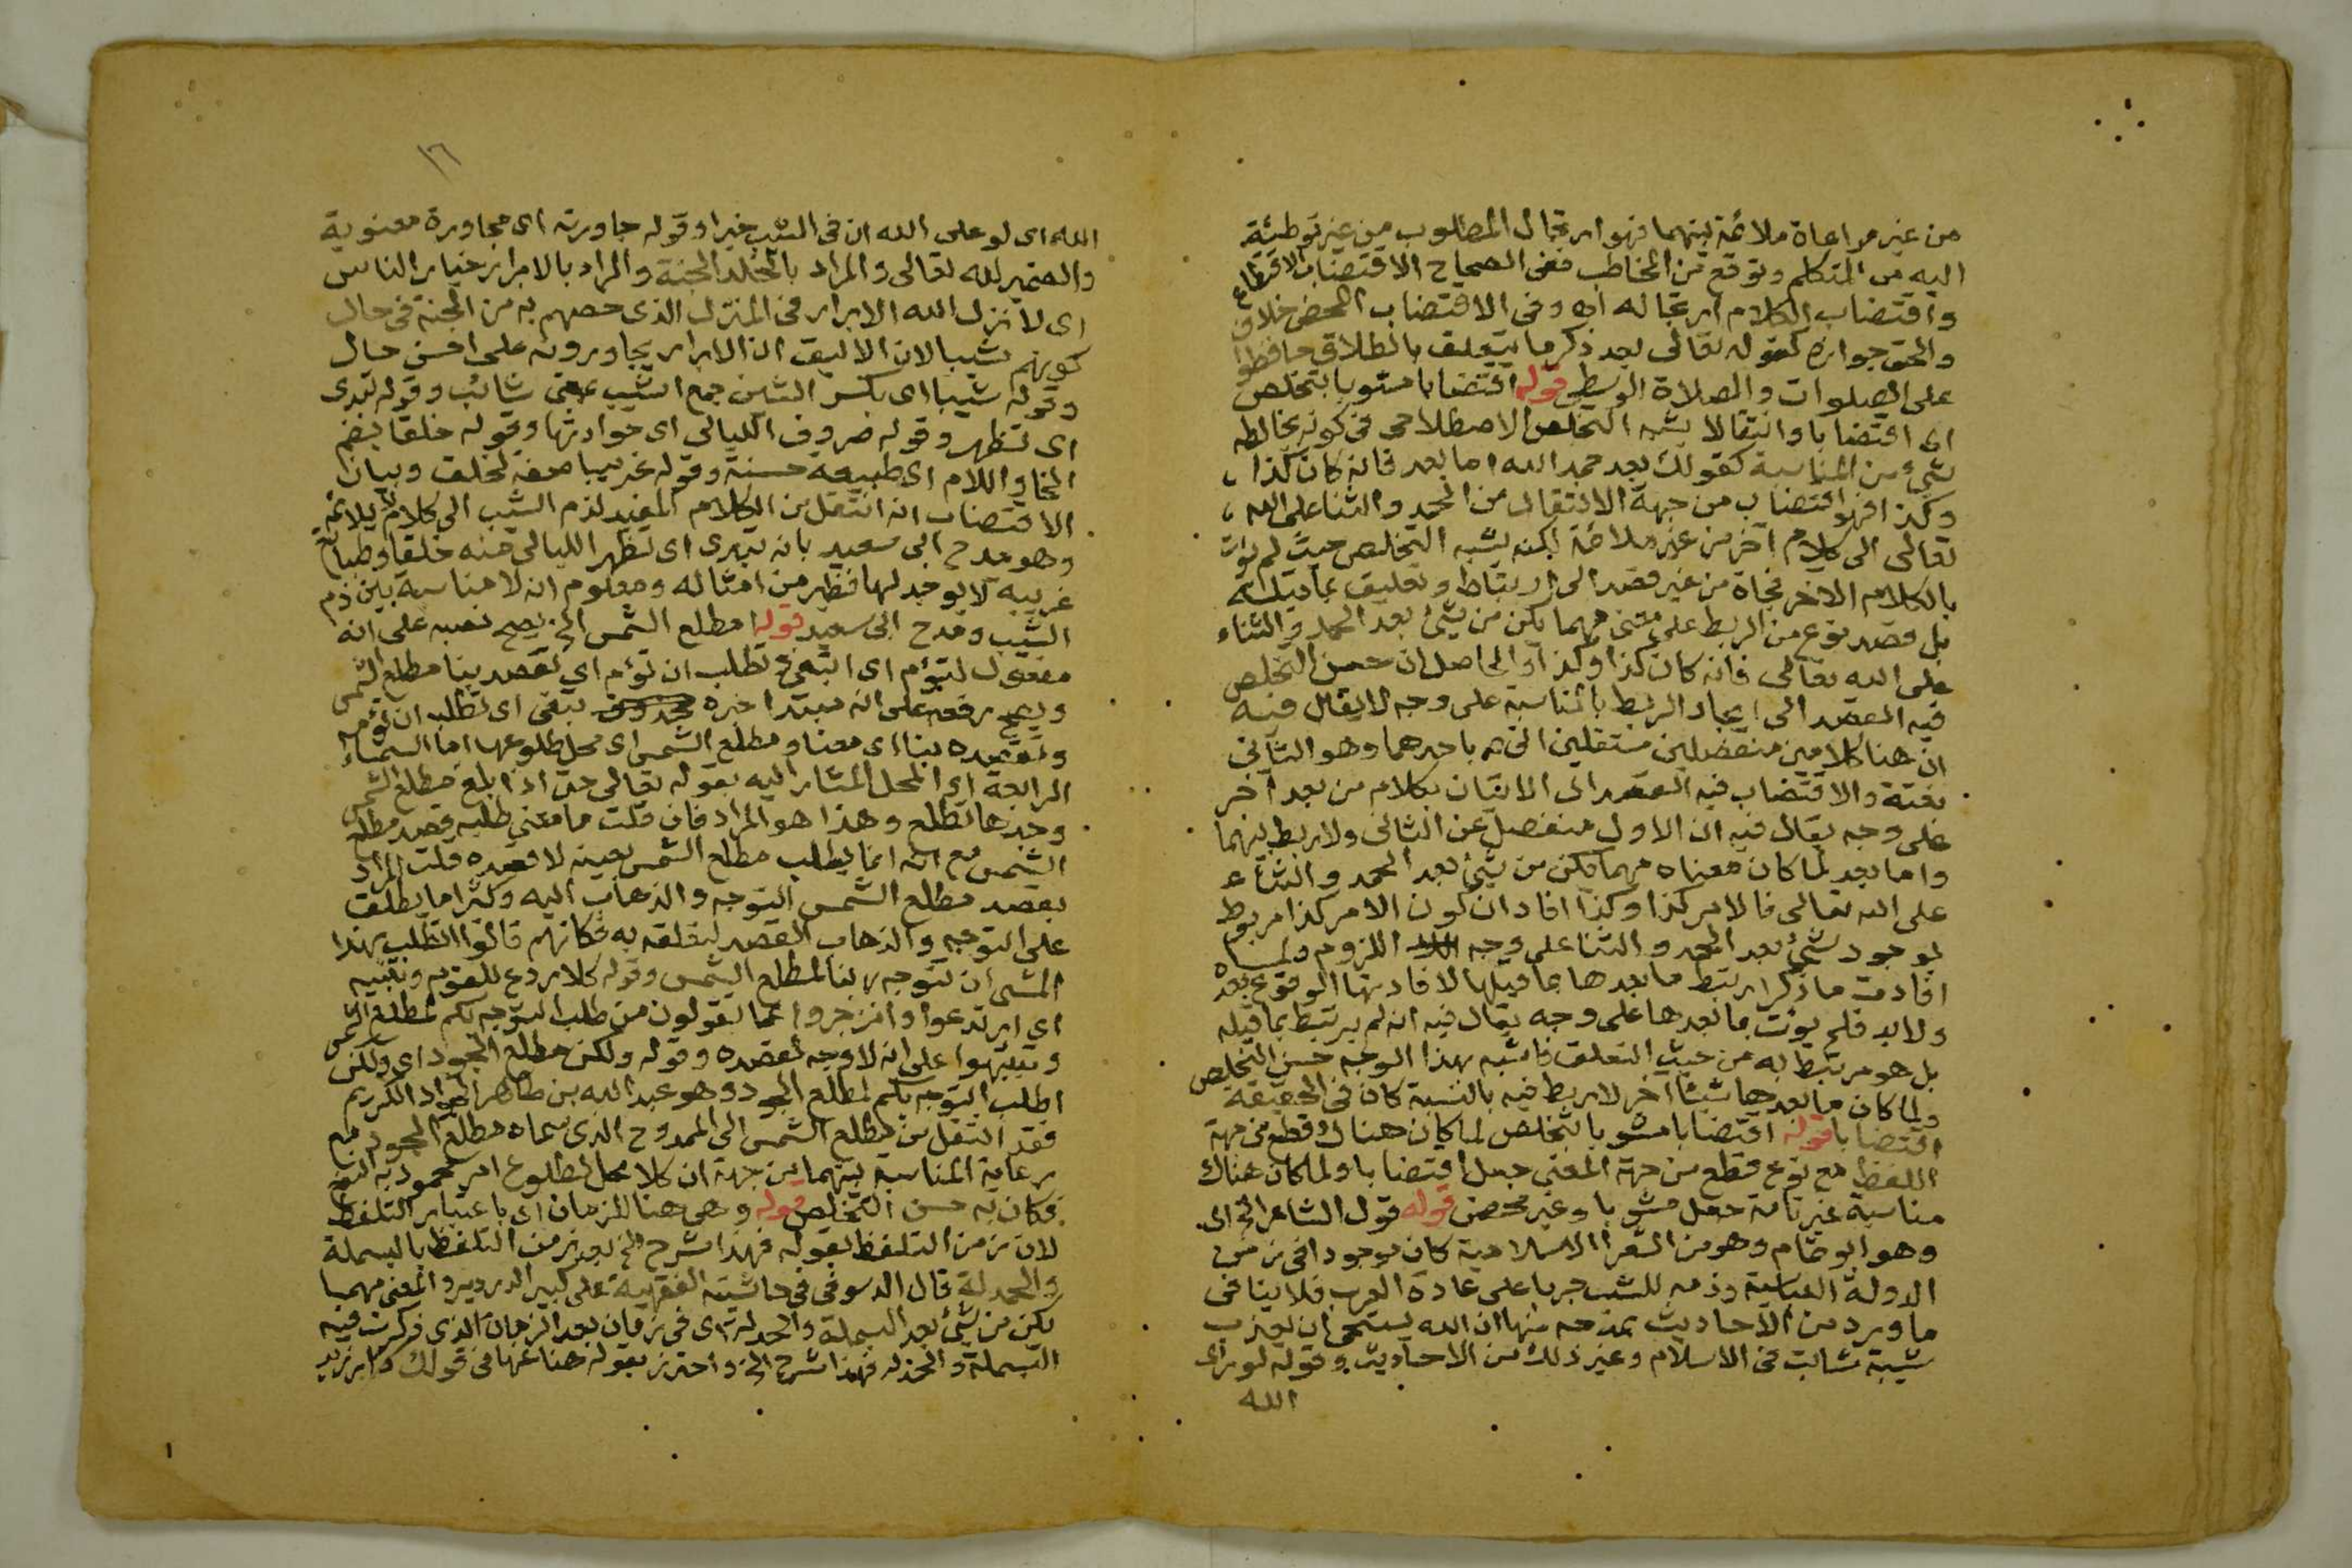 من غير مراعاة ملائمة بينهما فهو ارتجال المطلوب من غير توطئة
اليه من المتكلم وتوقع من المخاطب ففى الصحاح الاقتضاب الاقتطاع
واقتضاب الكلام ارتجاله اه وفى الاقتضاب المحض خلاف
والحق جوازه كقوله تعالى بعد ذكر ما يتعلق بالطلاق حافظوا
على الصلوات والصلاة الوسطى قوله اقتضابا مشوبا بتخلص
اى اقتضابا وانتقالا يشبه التخلص الاصطلاحى فى كونه يخالطه
شئ من المناسبة كقولك بعد حمد الله اما بعد فانه كان كذا
وكذا فهو اقتضاب من جهة الانتقال من الحمد والثنا على الله
تعالى الى كلام آخر من غير ملائمة لكنه يشبه التخلص حيث لم يؤت
بالكلام الاخر فجأة من غير قصد الى ارتباط وتعليق بما قبله
بل قصد نوع من الربط على معنى مهما يكن من شئ بعد الحمد والثناء
على الله تعالى فانه كان كذا وكذا والحاصل ان حسن التخلص
فيه القصد الى ايجاد الربط بالمناسبة على وجه لا يقال فيه
ان هنا كلامين منفصلين مستقلين اتى باحدهما وهو الثانى
بغتة والاقتضاب فيه القصد الى الاتيان بكلام من بعد آخر
على وجه يقال فيه ان الاول منفصل عن الثانى ولا ربط بينهما
واما بعد لما كان معناه مهما يكن من شئ بعد الحمد والثناء
على الله تعالى فالامر كذا وكذا افاد ان كون الامر كذا مربوط
بوجود شئ بعد الحمد والثنا على وجه اللزوم ولما
افادت ما ذكر ارتبط ما بعدها بما قبلها لافادتها الوقوع بعده
ولابد فلم يؤت بما بعدها على وجه يقال فيه انه لم يرتبط بما قبله
بل هو مرتبط به من حيث التعلق فاشبه بهذا الوجه حسن التخلص
ولما كان ما بعدها شيئا آخر لا ربط فيه بالنسبة كان فى الحقيقة
اقتضابا قوله اقتضابا مشوبا بتخلص لما كان هناك قطع من جهة
اللفظ مع نوع قطع من جهة المعنى جعل اقتضابا ولما كان هناك
مناسبة غير تامة جعل مشوبا وغير محض قوله قول الشاعر الخ اى
وهو ابو تمام وهو من الشعرا الاسلامية كان موجودا فى زمن
الدولة العباسية وذمه للشيب جريا على عادة العرب فلا ينافى
ما ورد من الاحاديث بمدحه منها ان الله يستحى ان يعذب
شيبة شابت فى الاسلام وغير ذلك من الاحاديث وقوله لو رأى
الله
١٦
الله اى لو على الله ان فى الشيب خيرا وقوله جاورته اى مجاورة معنوية
والضمير لله تعالى والمراد بالخلد الجنة والمراد بالابرار خيار الناس
اى لأنزل الله الابرار فى المنزل الذى خصهم به من الجنة فى حال
كونهم شيبا لان الاليق ان الابرار يجاورونه على احسن حال
وقوله شيبا اى بكسر الشين جمع اشيب بمعنى شائب وقوله تبدى
اى تظهر وقوله صروف الليالى اى حوادثها وقوله خلقا بضم
الخا واللام اى طبيعة حسنة وقوله غريبا صفة لخلق وبيان
الاقتضاب انه انتقل من الكلام المفيد لذم الشيب الى كلام لا يلائمه
وهو مدح ابى سعيد بانه تبدى اى تظهر الليالى منه خلقا وطبائع
غريبة لا يوجد لها نظير من امثاله ومعلوم انه لا مناسبة بين ذم
الشيب ومدح ابى سعيد قوله امطلع الشمس الخ يصح نصبه على انه
مفعول لتؤم اى اتبغى تطلب ان تؤم اى تقصد بنا مطلع الشمس
ويصح رفعه على انه مبتدا خبره محذوف تبغى اى تطلب ان تؤمه
وتقصده بنا اى معنا ومطلع الشمس اى محل طلوعها اما السماء
الرابعة او المحل المشار اليه بقوله تعالى حتى اذا بلغ مطلع الشمس
وجدها تطلع وهذا هو المراد فان قلت ما معنى طلبه قصد مطلع
الشمس مع انه انما يطلب مطلع الشمس بعينه لا قصده قلت المراد
بقصد مطلع الشمس التوجه والذهاب اليه وكثيرا ما يطلق
على التوجه والذهاب القصد لتعلقه به فكانهم قالوا اتطلب بهذا
المشى ان تتوجه بنا لمطلع الشمس وقوله كلا ردع للقوم وتنبيه
اى ارتدعوا وانزجروا عما تقولون من طلب التوجه بكم لمطلع الشمس
وتنبهوا على انه لا وجه لقصده وقوله ولكن مطلع الجود اى ولكن
اطلب التوجه بكم لمطلع الجود وهو عبد الله بن طاهر الجواد الكريم
فقد انتقل من مطلع الشمس الى الممدوح الذى سماه مطلع الجود مع
رعاية المناسبة بينهما من جهة ان كلا محل لطلوع امر محمود به النفع
فكان به حسن التخلص قوله وهى هنا للزمان اى باعتبار التلفظ
لان زمن التلفظ بقوله فهذا شرح الخ بعد زمن التلفظ بالبسملة
والحمدلة قال الدسوقى فى حاشيته الفقهية على كبير الدردير والمعنى مهما
يكن من شئ بعد البسملة والحمدلة اى فى زمان بعد الزمان الذى ذكرت فيه
البسملة والحمدلة فهذا شرح الخ واحترز بقوله هنا عنها فى قولك دار زيد